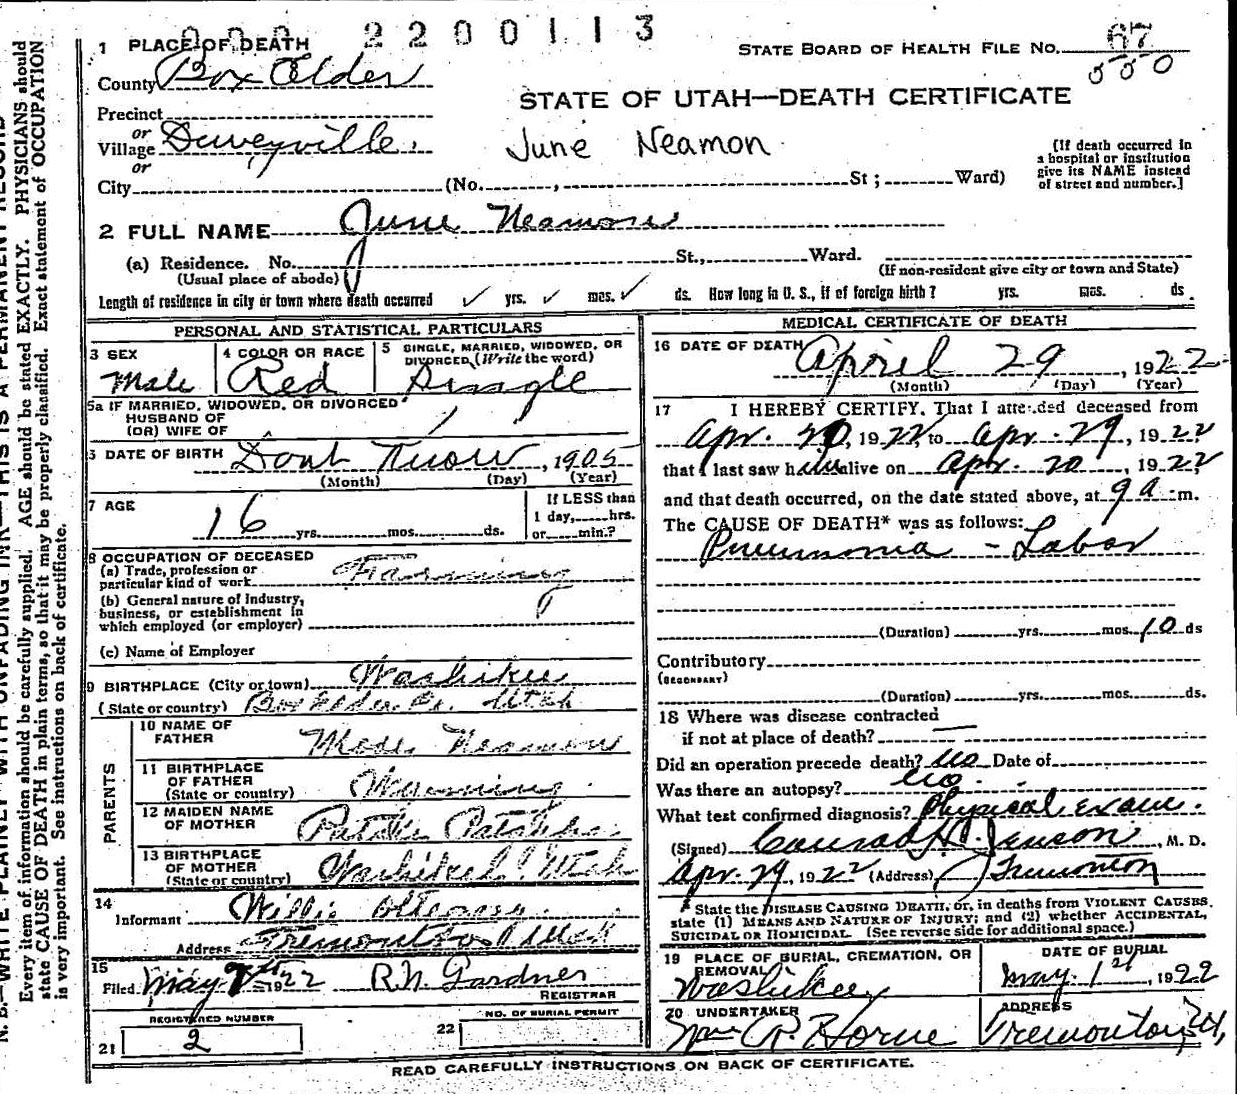 2200113
1 PLACE OF DEATH
STATE BOARD OF HEALTH FILE NO. 67
550
County Box Elder
STATE OF UTAH—DEATH CERTIFICATE
Precinct
or
Village Deweyville.
June Neamon
[If death occurred in
a hospital or institution
give its NAME instead
of street and number.]
or
City (No. , St ; Ward)
2 FULL NAME June Neamon
(a) Residence. No. St., Ward.
(Usual place of abode) (If non-resident give city or town and State)
Length of residence in city or town where death occurred ✓ yrs. ✓ mos. ✓ ds. How long in U. S., if of foreign birth? yrs. mos. ds.
PERSONAL AND STATISTICAL PARTICULARS
3 SEX
Male
4 COLOR OR RACE
Red
5 SINGLE, MARRIED, WIDOWED, OR
DIVORCED (Write the word)
Single
5a IF MARRIED, WIDOWED, OR DIVORCED
HUSBAND OF
(OR) WIFE OF
6 DATE OF BIRTH Dont Know, 1905
(Month) (Day) (Year)
7 AGE
16 yrs. mos. ds.
If LESS than
1 day, hrs.
or min.?
8 OCCUPATION OF DECEASED
(a) Trade, profession or
particular kind of work Farming
(b) General nature of industry,
business, or establishment in
which employed (or employer)
(c) Name of Employer
9 BIRTHPLACE (City or town) Washikee
(State or country) Box Elder Co. Utah
PARENTS
10 NAME OF
FATHER Mose Neamon
11 BIRTHPLACE
OF FATHER
(State or country) Wyoming
12 MAIDEN NAME
OF MOTHER
13 BIRTHPLACE
OF MOTHER
(State or country) Washikee Utah
14
Informant Willie Ottogary
Address Tremonton Utah
15
Filed May 1922 R.N. Gardner
REGISTRAR
REGISTERED NUMBER
21 2
22 NO. OF BURIAL PERMIT
MEDICAL CERTIFICATE OF DEATH
16 DATE OF DEATH
April 29, 1922
(Month) (Day) (Year)
17 I HEREBY CERTIFY, That I attended deceased from
Apr. 20, 1922, to Apr. 29, 1922
that I last saw him alive on Apr. 20, 1922
and that death occurred, on the date stated above, at 9 a m.
The CAUSE OF DEATH* was as follows:
Pneumonia - Lobar
(Duration) yrs. mos. 10 ds
Contributory
(SECONDARY)
(Duration) yrs. mos. ds.
18 Where was disease contracted
if not at place of death?
Did an operation precede death? no Date of
Was there an autopsy? no.
What test confirmed diagnosis? Physical exam.
(Signed) Conrad H. Jenson, M. D.
Apr. 29, 1922 (Address) Tremonton
* State the DISEASE CAUSING DEATH, or, in deaths from VIOLENT CAUSES,
state (1) MEANS AND NATURE OF INJURY; and (2) whether ACCIDENTAL,
SUICIDAL OR HOMICIDAL. (See reverse side for additional space.)
19 PLACE OF BURIAL, CREMATION, OR
REMOVAL
Washikee
DATE OF BURIAL
May 1st, 1922
20 UNDERTAKER
Wm R. Horne
ADDRESS
Tremonton, Ut,
READ CAREFULLY INSTRUCTIONS ON BACK OF CERTIFICATE.
N. B.—WRITE PLAINLY WITH UNFADING INK—THIS IS A PERMANENT RECORD
Every item of information should be carefully supplied. AGE should be stated EXACTLY. PHYSICIANS should
state CAUSE OF DEATH in plain terms, so that it may be properly classified. Exact statement of OCCUPATION
is very important. See instructions on back of certificate.